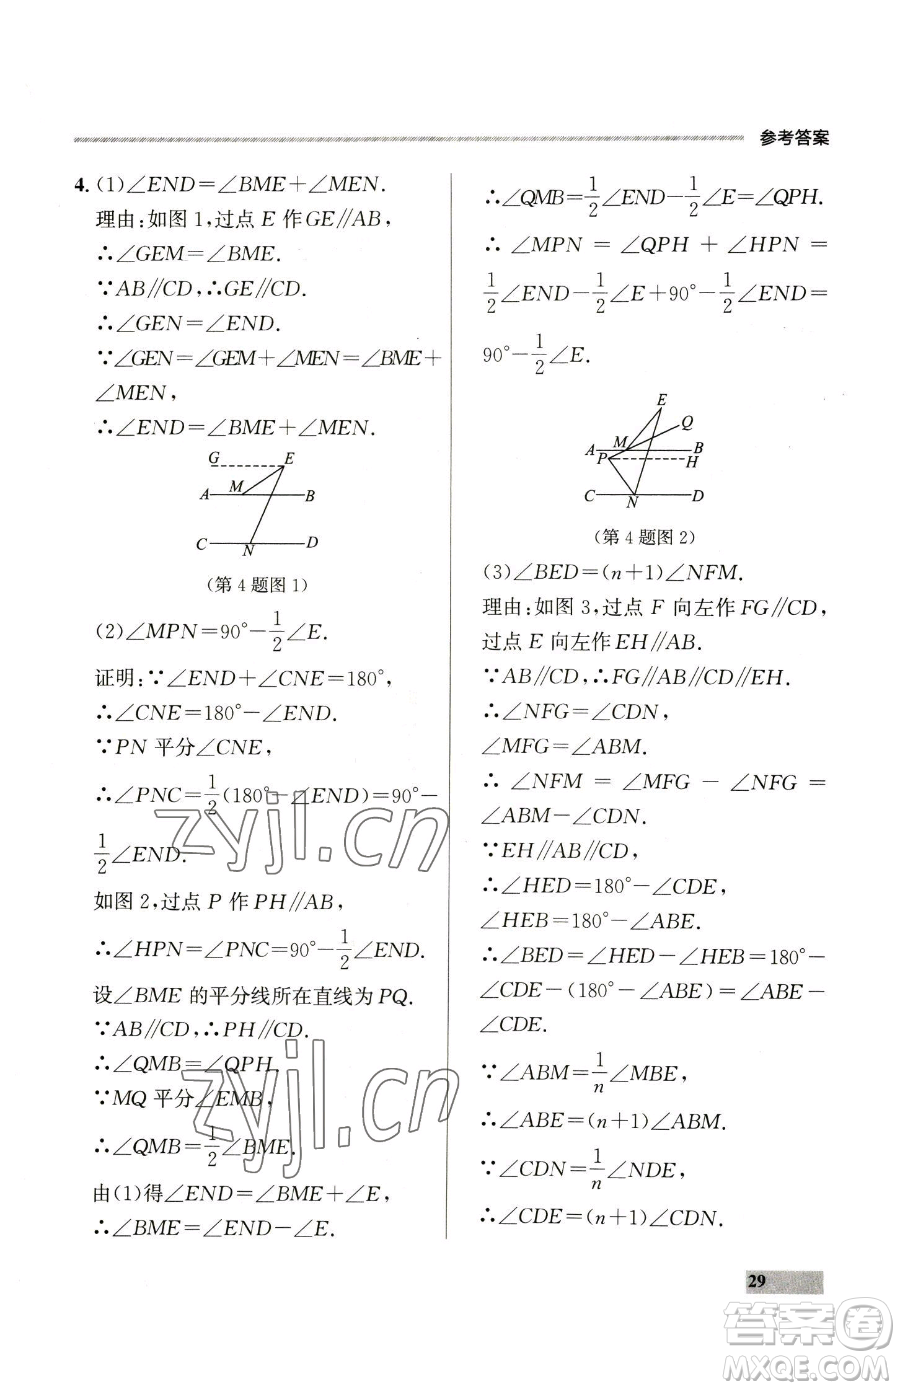 参考答案
4. (1)∠END=∠BME+∠MEN.
理由:如图1,过点E作GE∥AB,
∴∠GEM=∠BME.
∵AB∥CD,∴GE∥CD.
∴∠GEN=∠END.
∵∠GEN=∠GEM+∠MEN=∠BME+
∠MEN,
∴∠END=∠BME+∠MEN.
G E
A M B
C N D
(第4题图1)
(2)∠MPN=90°-1/2∠E.
证明:∵∠END+∠CNE=180°,
∴∠CNE=180°-∠END.
∵PN平分∠CNE,
∴∠PNC=1/2(180°-∠END)=90°-
1/2∠END.
如图2,过点P作PH∥AB,
∴∠HPN=∠PNC=90°-1/2∠END.
设∠BME的平分线所在直线为PQ.
∵AB∥CD,∴PH∥CD.
∴∠QMB=∠QPH.
∵MQ平分∠EMB,
∴∠QMB=1/2∠BME.
由(1)得∠END=∠BME+∠E,
∴∠BME=∠END-∠E.
∴∠QMB=1/2∠END-1/2∠E=∠QPH.
∴∠MPN=∠QPH+∠HPN=
1/2∠END-1/2∠E+90°-1/2∠END=
90°-1/2∠E.
E
Q
A M B
P H
C N D
(第4题图2)
(3)∠BED=(n+1)∠NFM.
理由:如图3,过点F向左作FG∥CD,
过点E向左作EH∥AB.
∵AB∥CD,∴FG∥AB∥CD∥EH.
∴∠NFG=∠CDN,
∠MFG=∠ABM.
∴∠NFM=∠MFG-∠NFG=
∠ABM-∠CDN.
∵EH∥AB∥CD,
∴∠HED=180°-∠CDE,
∠HEB=180°-∠ABE.
∴∠BED=∠HED-∠HEB=180°-
∠CDE-(180°-∠ABE)=∠ABE-
∠CDE.
∵∠ABM=1/n∠MBE,
∴∠ABE=(n+1)∠ABM.
∵∠CDN=1/n∠NDE,
∴∠CDE=(n+1)∠CDN.
29
zyjl.cn
zyjl.cn
答案圈
MXQE.COM